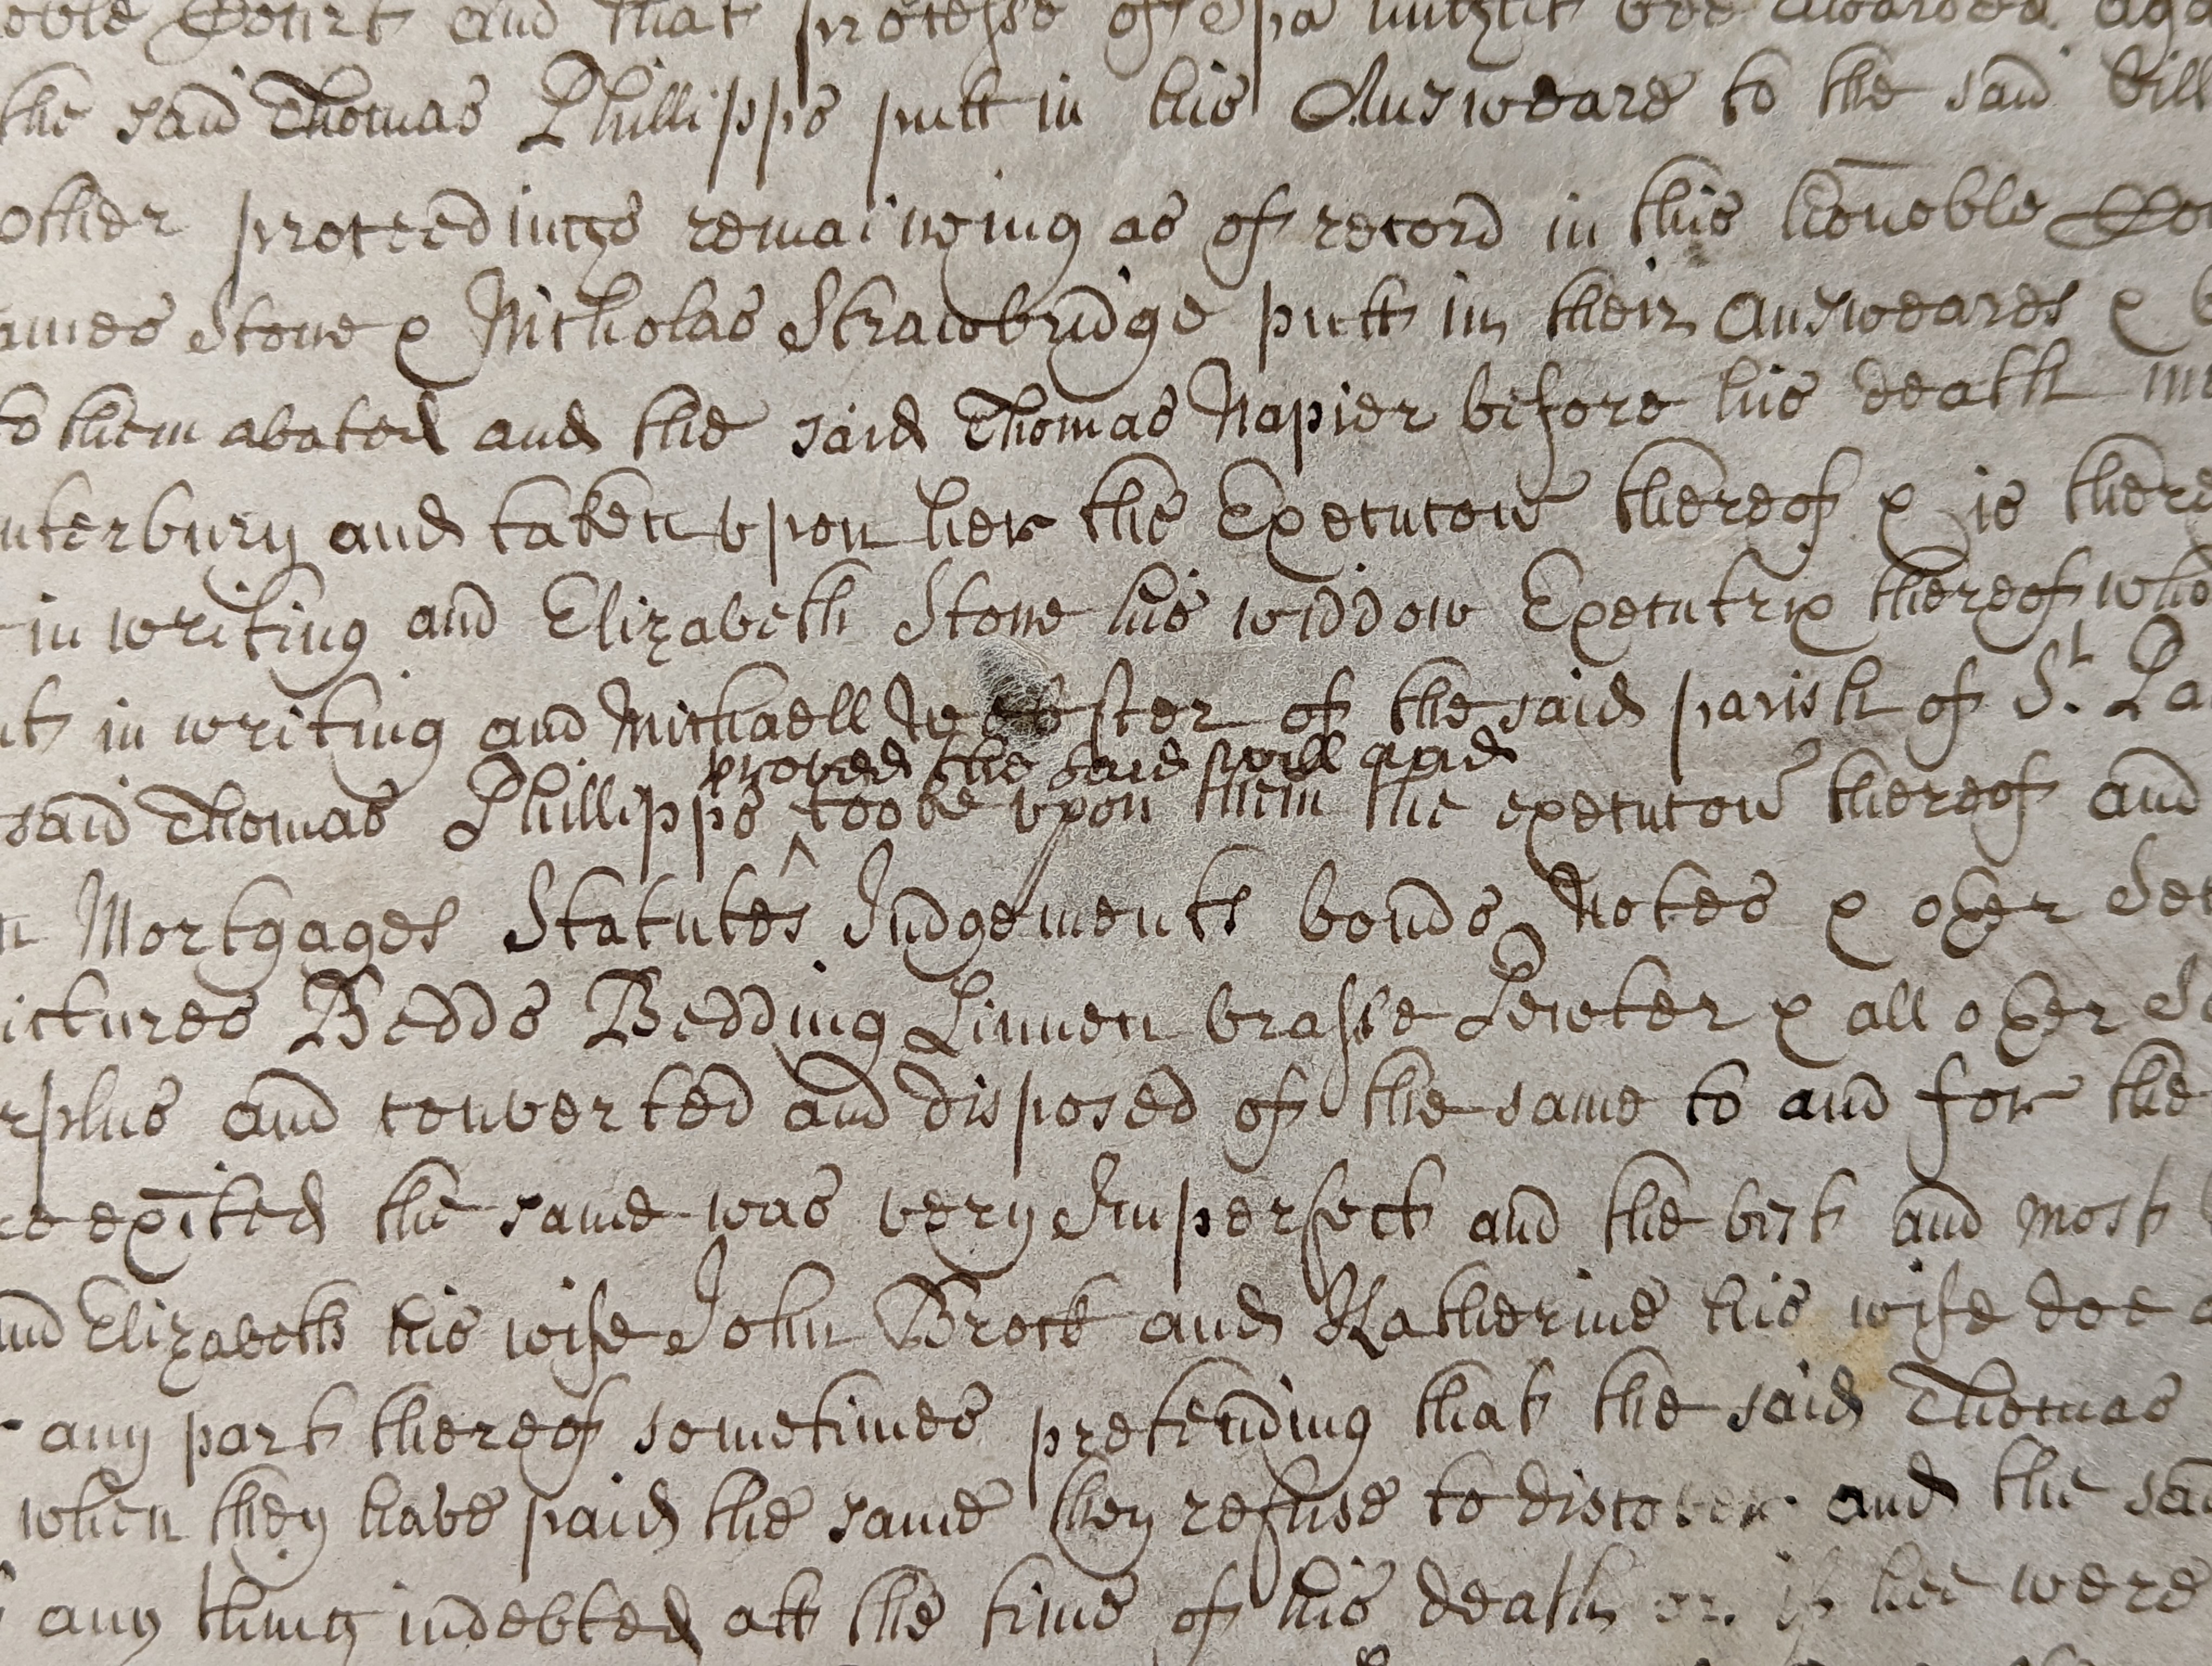 oble Court and that processe of Spa might bee awarded aga
the said Thomas Phillipps putt in his Answeare to the said bill
other proceedings remaineing as of record in this honoble Cou
ames Stone & Nicholas Strawbridge putt in their Answeares &
to them abated and the said Thomas Napier before his death
nterbury and taken vpon her the Execucon thereof & is there
in writing and Elizabeth Stone his widdow Executrix thereof who
in writing and Michaell Webster of the said parish of St. Pa
proved the said will and
said Thomas Phillipps ^ tooke vpon them the execucon thereof and
Mortgages Statutes Judgements bonds Notes & other Se
ictures Bedds Bedding Linnen brasse Pewter & all other
rplus and converted and disposed of the same to and for the
exited the same was very Imperfect and the best and most
and Elizabeth his wife John Brock and Katherine his wife doe
any part thereof sometimes pretending that the said Thomas
when they have paid the same they refuse to discover and the sa
any thing indebted att the time of his death or if hee were